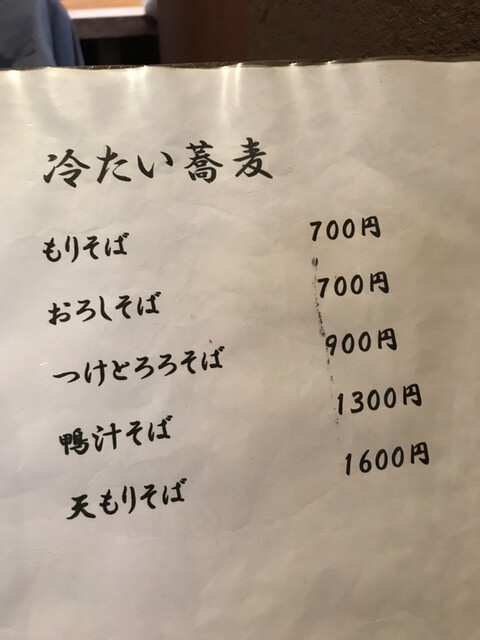 冷たい蕎麦
もりそば 700円
おろしそば 700円
つけとろろそば 900円
鴨汁そば 1300円
天もりそば 1600円